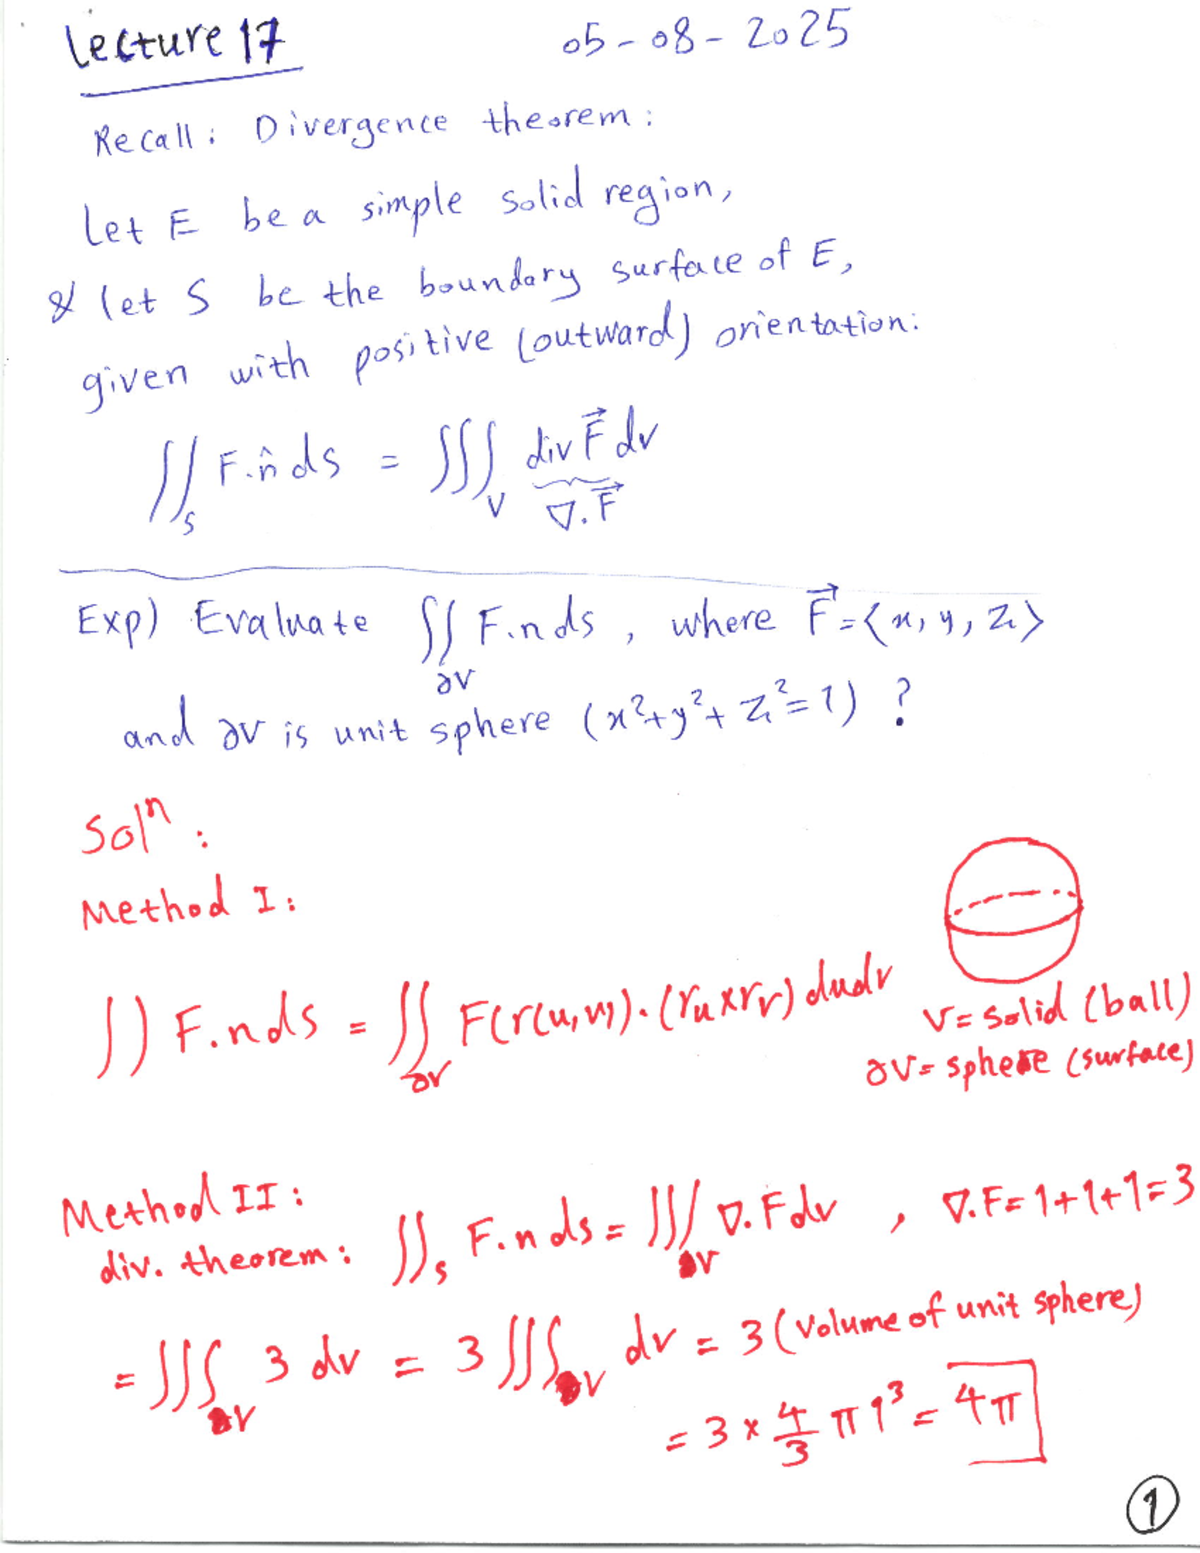 Lecture 17 05-08-2025
Recall: Divergence theorem:
Let E be a simple solid region,
& let S be the boundary surface of E,
given with positive (outward) orientation:
∬_S F.n̂ ds = ∭_V div F⃗ dv
∇.F⃗
Exp) Evaluate ∬_∂V F.n ds, where F⃗=⟨x, y, z⟩
and ∂V is unit sphere (x²+y²+z²=1) ?
Solⁿ:
Method I:
∬ F.n ds = ∬_∂V F(r(u,v)).(r_u×r_v) dudv
V= solid (ball)
∂V= sphere (surface)
Method II:
div. theorem: ∬_S F.n ds = ∭_V ∇.F dv , ∇.F=1+1+1=3
= ∭_V 3 dv = 3 ∭_V dv = 3 (Volume of unit sphere)
= 3 × 4/3 π 1³ = 4π
1